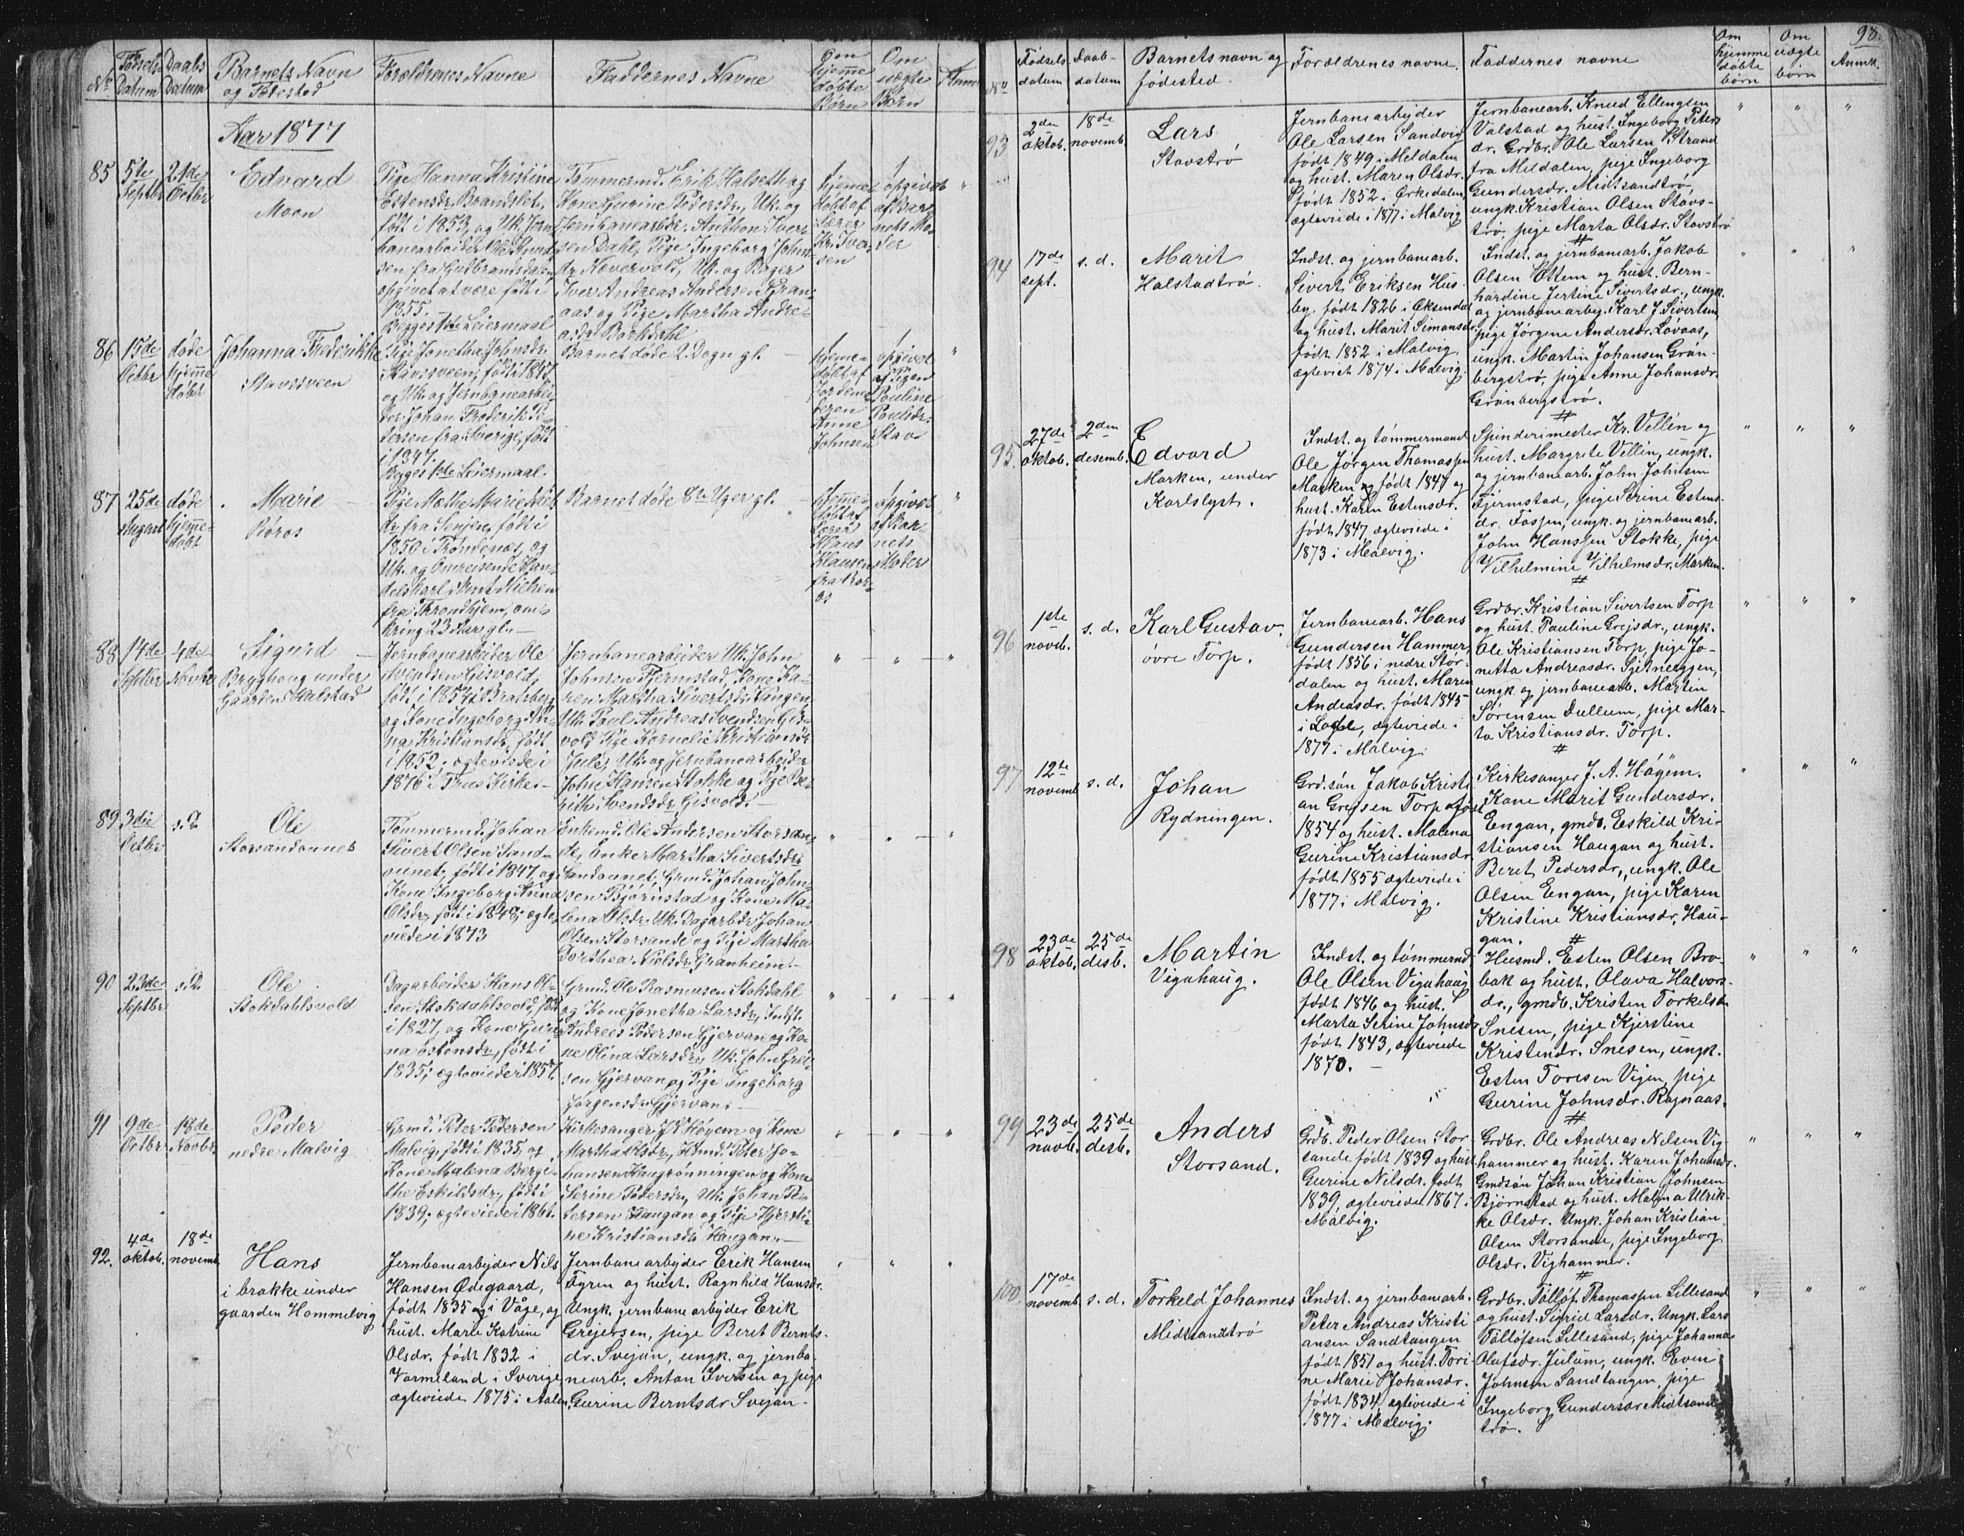 No
Fødsels
Datum
Daabs
Datum
Barnets Navn
og Fødested
Forældrenes Navne
Faddernes Navne
Om
hjemme
døbte
Børn
Om
uægte
Børn
Anm
Aar 1877
85
5te
Septbr
21de
Octbr
Edvard
Moen
Pige Hanna Kristine
Estensdr. Brandslet,
født i 1853, og Uk. Jern-
banearbeider Ole Knud-
sen fra Gudbrandsdalen
opgivet at være født i
1855.
Begges 1ste Leiermaal
Tømmermd. Erik Halseth og
Kone Gurine Pedersdr., Uk. og
Jernbanearbdr. Anthon Iver-
sen Dahl, Pige Ingeborg Johns-
dr. Nevervold, Uk. og Bager
Iver Andreas Andersen Gran-
aas og Pige Martha Andre-
asdr. Bakdahl
hjemme-
døbt af
Lærer
Kr. Iver-
sen
1
opgivet
af Bar-
nets Mo-
der
86
15de
Octbr
døde
hjemme
døbt
Johanna Fredrikke
Stavssveen
Pige Jonetha Johnsdr.
Stavssveen, født i 1847
og Uk. og Jernbanearbei-
der Johan Frederik Pe-
tersen fra Sverige, født
i 1847.
Begges 1ste Leiermaal.
Barnet døde 2 Dogn gl.
hjemme-
døbt af
Jordemo-
deren
Anne
Johnsen
1
opgivet
af Pigen
Pauline
Paulsdr.
Stav
87
25de
August
døde
hjemme-
døbt
Marie
Røros
fra Senjen, født i
1850 i Trondenæs, og
Uk. og Omreisende Han-
delskarl
fra Throndhjem, om-
kring 23 Aar gl.
Barnet døde 8te Uger gl.
hjemme-
døbt af
Lærer
Hans
Klausen
fra Rør-
os
1
opgivet
af Bar
nets
Moder
88
14de
Septbr
4de
Novbr
Sigurd
Brygghoug under
Gaarden Halstad
Jernbanearbeider Ole
Svendsen Gisvold,
født i 1854 i Bratsberg
og Kone Ingeborg An-
na Kristiansdr., født
i 1852, ægteviede i
1876 i Frue Kirke.
Jernbanearbeider Uk. John
Johnsen Fjermstad, Kone Ka-
ren Martha Sivertsdr. Haugen,
Uk. Paul Andreas Svendsen Gis-
vold Pige Kornelie Kristiansdr.
Julei, Uk. og Jernbanearbeider
John Hansen Stokke og Pige Be-
rith Svendsdr. Gisvold.
89
3die
Octbr
s. D.
Ole
Storsandaunet
Tømmermd. Johan
Sivert Olsen Sand-
aunet, født i 1847 og
Kone Ingeborg Anna
Olsdr., født i 1848, ægte-
viede i 1873
Enkemd. Ole Andersen Storsan-
de, Enke Martha Sivertsdr.
Sandaunet, Grmd. Johan John-
sen Bjørnstad og Kone Ma-
lena Olsdr. Uk. Dagarbdr. Johan
Olsen Storsande og Pige Martha
Dorthea Nilsdr. Granheim.
90
23de
Septbr
s. D.
Ole
Stokdahlsvold
Dagarbeider Hans Ol-
sen Stokdahlsvold, født
i 1827, og Kone Guri-
na Estensdr., født i
1835, ægteviede i 1857.
Grmd. Ole Rasmusen Stokdahl
og Kone Jonetha Larsdr., Indst.
Andreas Pedersen Gjervan og Ko-
ne Olina Larsdr., Uk. John Grei-
sen Gjervan og Pige Ingeborg
Jørgensdr. Gjervan.
91
9de
Octbr
18de
Novbr
Peder
nedre Malvig
Grmd. Peter Pedersen
Malvig, født i 1835, og
Kone Malena Berge-
the Eskildsdr., født i
1839, ægteviede i 1861.
Kirkesanger J. A. Høyem og Kone
Martha Olsdr., Husmd. Peter Jo-
hansen Haugrønningen og Kone
Serine Pedersdr., Uk. Johan Pe-
tersen Haugan og Pige Kjersti-
ne Kristiansdr. Haugan.
92.
4de
oktob.
18de
novemb.
Hans
i brakke under
gaarden Hommelvig
Jernbanearbejder Nils
Hansen Ødegaard,
født 1835 i Våge, og
hust. Marie Katrine
Olsdr. født 1832 i
Varmeland i Sverige
ægteviede 1875 i Aalen.
Jernbanearbejder Erik Hansen
Fyren og hust. Ragnhild Hansdr.
Ungk. jernbanearbejder Erik
Grejersen, pige Beret Bernts-
dr. Svejan, ungk. og jernba-
nearb. Anton Iversen og pige
Gurine Berntsdr. Svejan.
93
No
Fødsels
datum
Daab-
datum
Barnets navn og
fødested
Forældrenes navne.
Faddernes navne
Om
hjemme
døbte
børn
Om
uægte
børn
Anmk.
98.
2den
oktob.
18de
novemb.
Lars
Stavstrø
Jernbanearbejder
Ole Larsen Sandvig
født 1849 i Meldalen
og hust. Maren Olsdr.
født 1852 i Ørkedalen,
ægteviede i 1877 i Malvig
Jernbanearb. Knud Ellengsen
Valstad og hust. Ingeborg Peters
dr. Grdbr. Ole Larsen Strand
fra Meldalen, pige Ingeborg
Gundersdr. Midtsandtrø,
ungk. Kristian Olsen Stavs-
trø, pige Marta Olsdr. Stavstrø
94
17de
sept.
s. d.
Marit
Halstadtrø.
Indst. og jernbanearb.
Sivert Eriksen Hus-
by, født 1826 i Øksendal
og hust. Marit Simonsdr.
født 1852 i Malvig,
ægteviet i 1874 i Malvig.
Indst. og jernbanearb. Jakob
Olsen Ottem og hust. Bern-
hardine Jertine Sivertsdr., ungk.
og jernbanearbej. Karl J. Sivertsen
pige Jørgine Andersdr. Løvaas,
ungk. Martin Johansen Gran-
bergstrø, pige Anne Johansdr.
Granbergstrø.
95.
27de
oktob.
2den
desemb.
Edvard
Marken, under
Karlslyst.
Indst. og tømmermand
Ole Jørgen Thomassen
Marken og født 1847 og
hust. Karen Estensdr.
født 1847, ægteviede i
1873 i Malvig.
Spinderimester Kr. Vellén og
hust. Margrete Vellén, ungk.
og jernbanearb. John Johnsen
Fjermstad, pige Serine Estens-
dr. Fossen, ungk. og jernbanearb.
John Hanssen Stokke, pige
Vilhelmine Vilhelmsdr. Marken.
96
1ste
novb.
s. d.
Karl Gustav.
øvre Torp.
Jernbanearb. Hans
Gundersen Hammer,
født 1856 i nedre Stør-
dalen og hust. Maren
Andreasdr. født 1845
i Lade, ægteviede i
1877 i Malvig.
Grdbr. Kristian Sivertsen Torp
og hust. Pauline Grejsdr., ungk.
Ole Kristiansen Torp, pige Jo-
netta Andreasdr. Sjetnereggen,
ungk. og jernbanearb. Martin
Sørensen Dullum, pige Mar-
ta Kristiansdr. Torp.
97
12te
novemb
s. d.
Johan
Rydningen.
Grd.søn Jakob Kristi
an Grejsen Torp født
1854 og hust. Malena
Gurine Kristiansdr.
født 1855 ægteviede i
1877 i Malvig.
Kirkesanger J. A. Höyem.
Kone Marit Gundersdr.
Engan, gmdb. Eskild Kri-
stiansen Haugan og hust.
Beret Pedersdr., ungk. Ole
Olsen Engan, pige Karen
Kristine Kristiansdr. Hau-
gan.
98
23de
oktob.
25de
desb.
Martin
Vigahaug.
Indst. og tømmermd
Ole Olsen Vigahaug
født 1846 og hust.
Marta Serine Johnsdr
født 1843, ægteviede
1870.
Husmd. Esten Olsen Bro-
bak og hust. Olava Halvors-
dr., gmdb. Kristen Torkilsen
Snesen, pige Kjerstine
Kristendr. Snesen, ungk.
Esten Toresen Vigen, pige
Gurine Johnsdr. Rognaas.
99
23de
novb.
25de
desb.
Anders
Storsand.
Grdb. Peder Olsen Stor
sande født 1839 og hust
Gurine Nilsdr. født
1839, ægteviede 1867 i
Malvig.
Grdbr. Ole Andreas Nilsen Vig-
hammer og hust. Karen Johansdr.
Gmdsøn Johan Kristian Johnsen
Bjørnstad og hust. Malena Ulrik-
ke Olsdr. Ungk. Johan Kristian
Olsen Storsande, pige Ingeborg
Olsdr. Vighammer.
100.
17de
novemb.
s. d.
Torkeld Johannes
Midtsandtrø
Indst. og jernbanearb.
Peter Andreas Kristi
ansen Sandtangen
født 1851 og hust. Tori-
ne Marie Johansdr.
født 1834, ægteviede i
1877 i Malvig.
Grdbr. Tollöf Thomassen Lillesand
og hust. Sigrid Larsdr. Ungk. Lars
Tollöfsen Lillesand, pige Johanna
Olufsdr. Julum, ungk. Even
Johnsen Sandtangen, pige
Ingeborg Gundersdr. Midtsand-
trø.